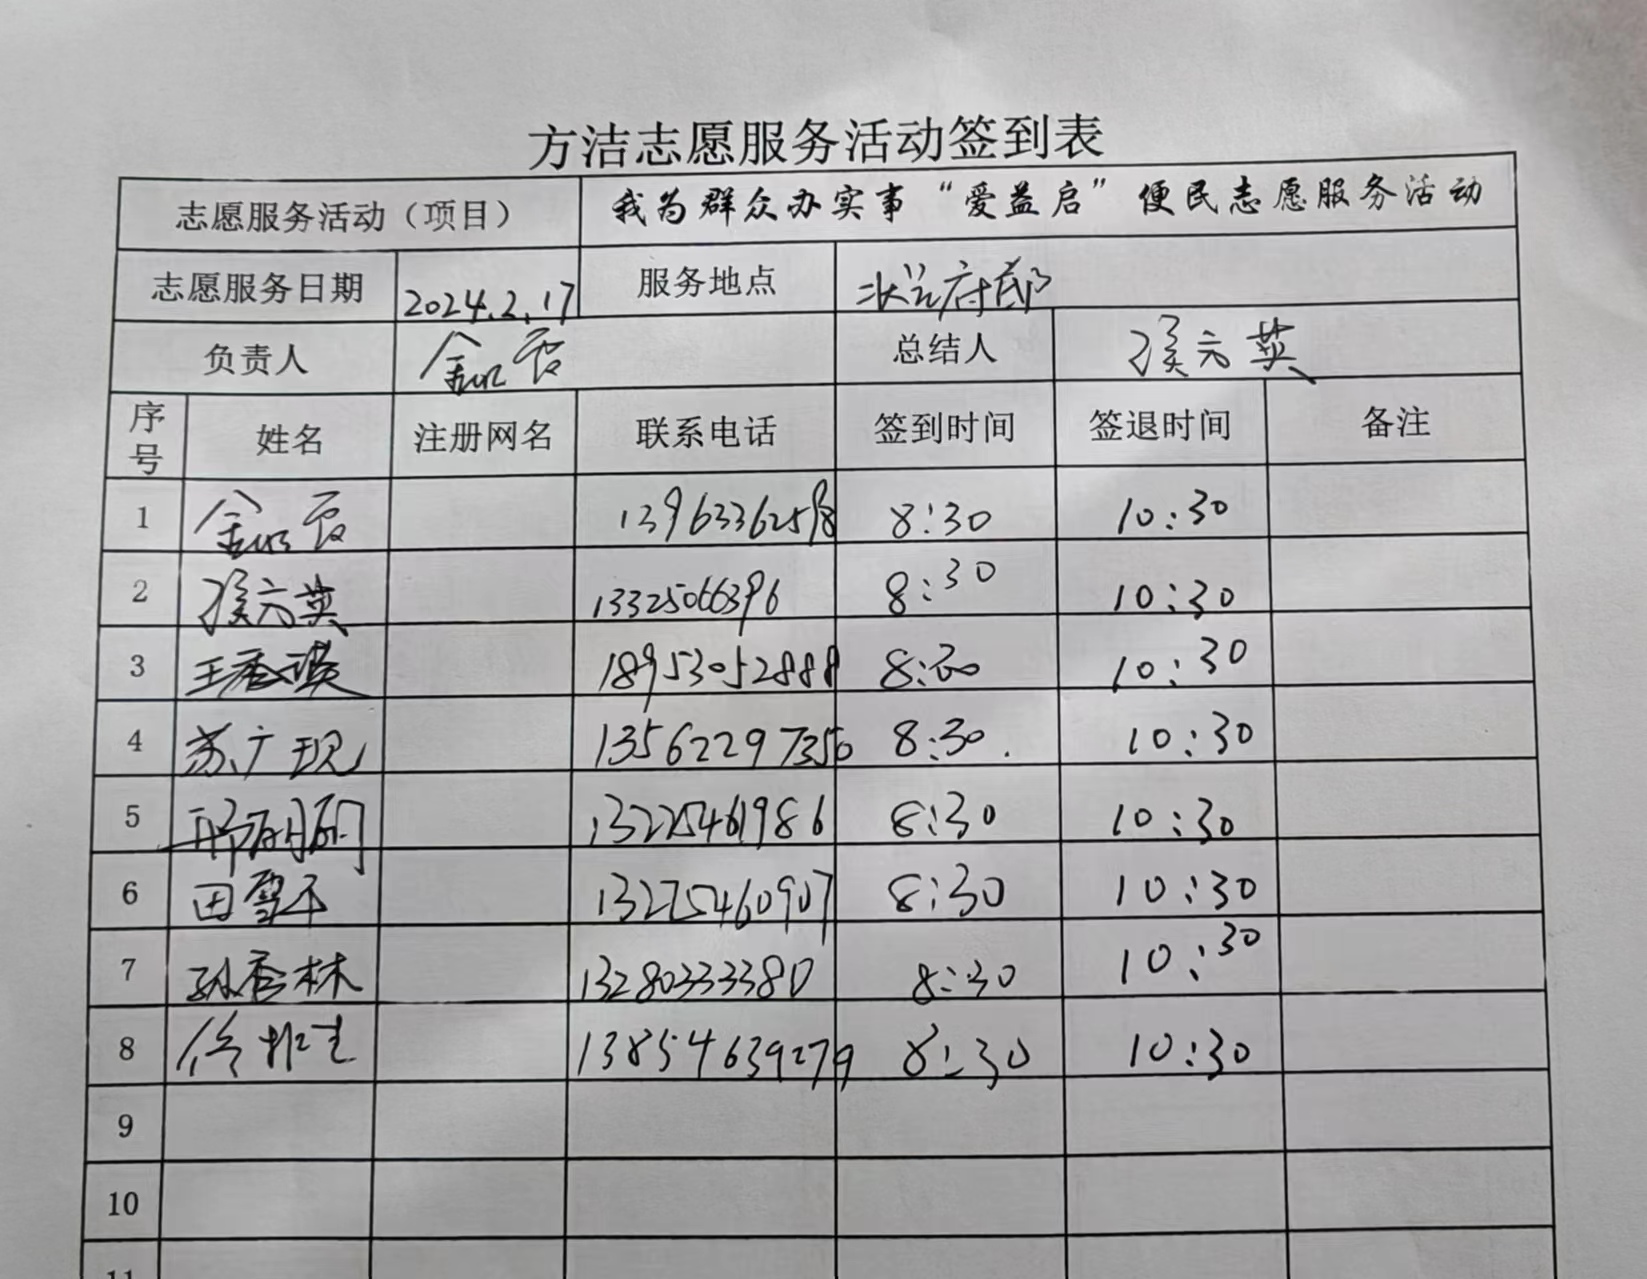 方洁志愿服务活动签到表
志愿服务活动（项目） 我为群众办实事“爱益启”便民志愿服务活动
志愿服务日期 2024.2.17 服务地点 状元府邸
负责人 总结人 侯元英
序号 姓名 注册网名 联系电话 签到时间 签退时间 备注
1 8:30 10:30
2 侯元英 13325066396 8:30 10:30
3 18953052888 8:30 10:30
4 苏广现 13562297350 8:30. 10:30
5 13225461986 8:30 10:30
6 田雪平 13225460907 8:30 10:30
7 孙香林 13280333380 8:30 10:30
8 13854639279 8:30 10:30
9
10
11